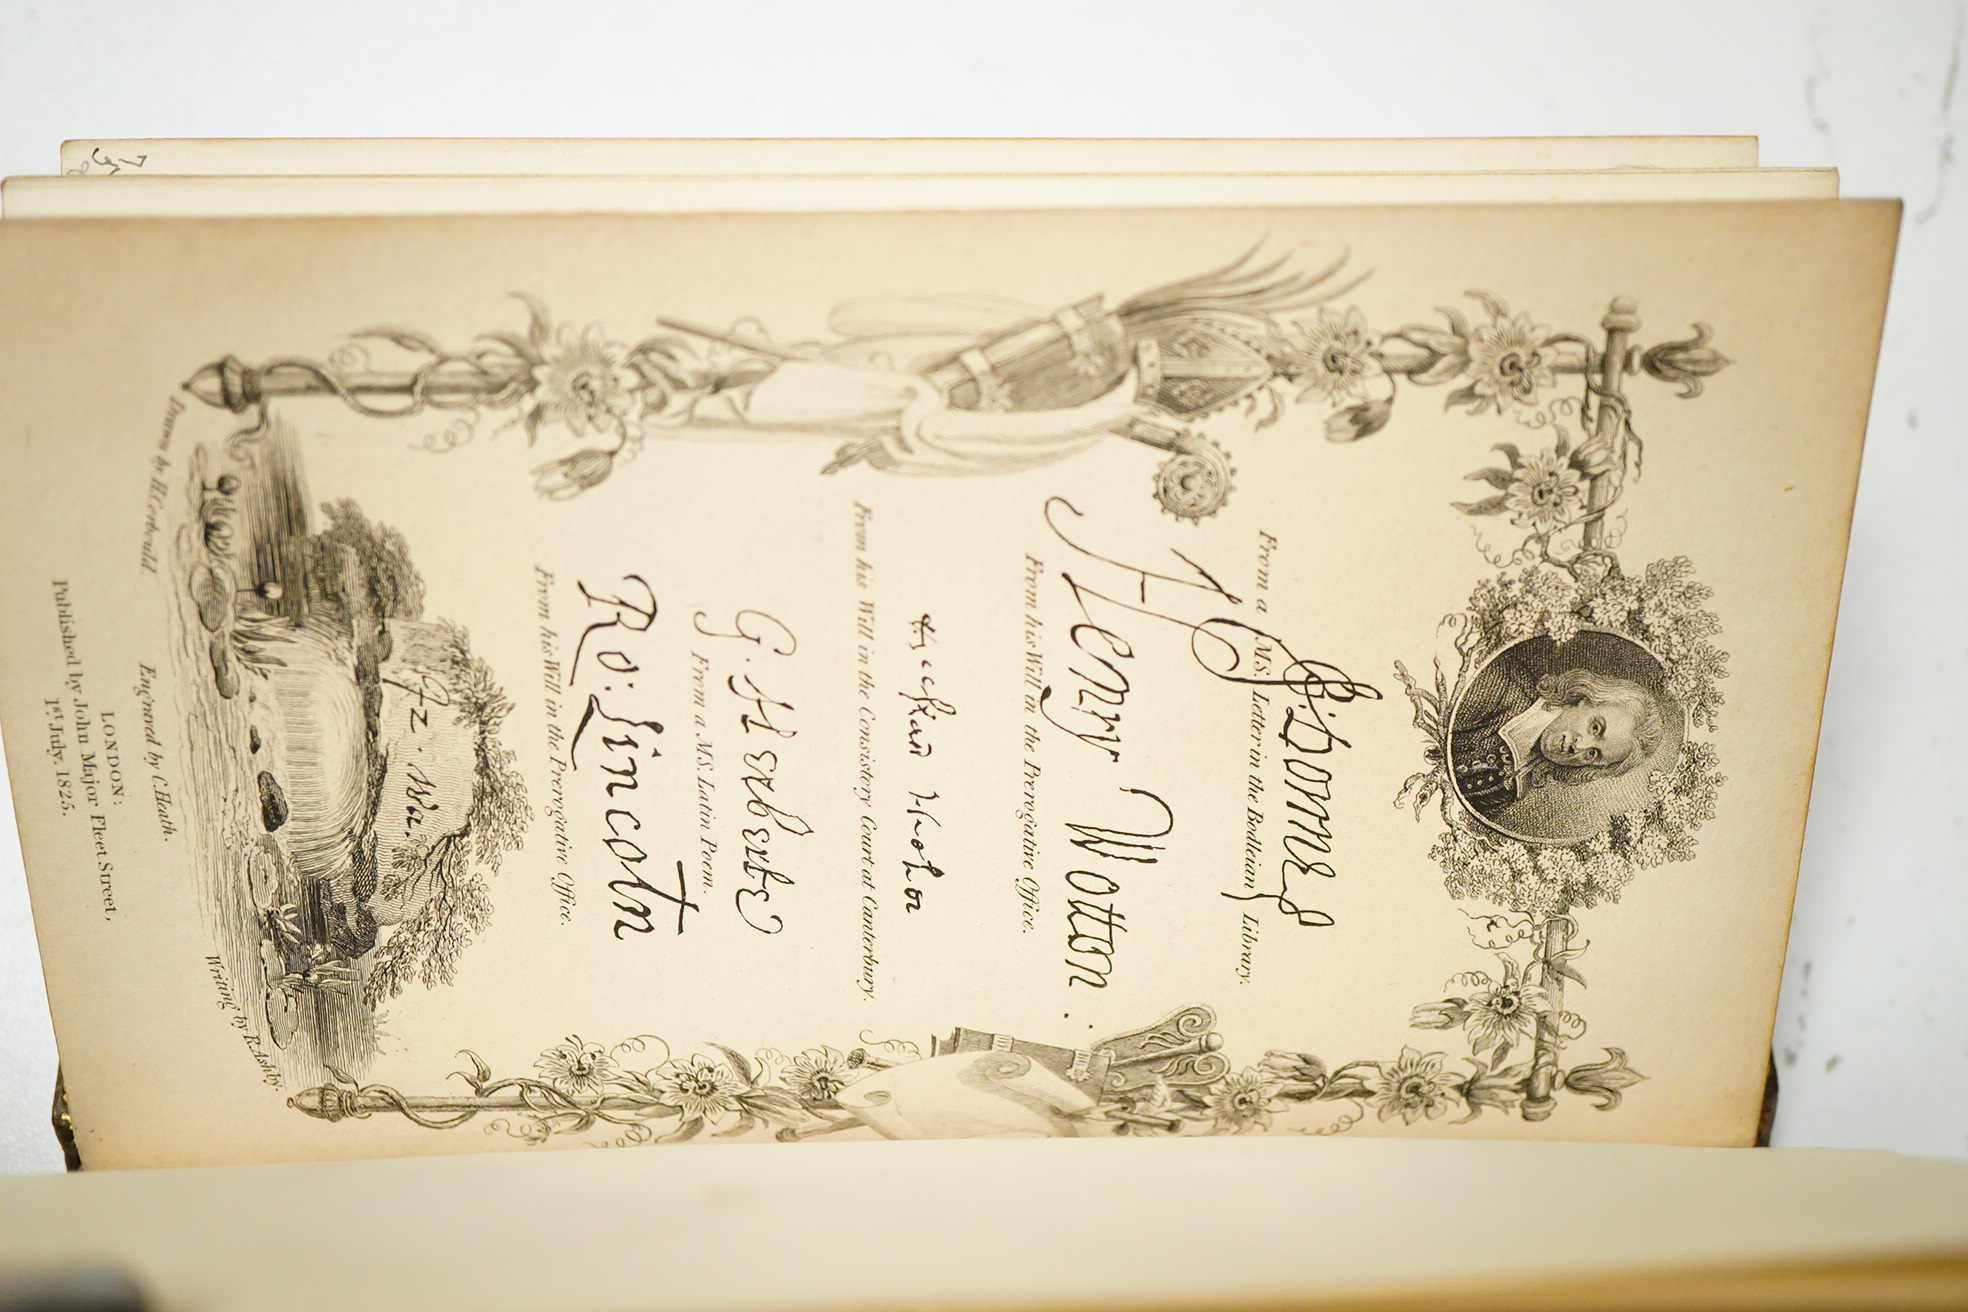 J: Donne
From a M.S. Letter in the Bodleian Library.
Henry Wotton.
From his Will in the Prerogative Office.
Richard Hooker
From his Will in the Consistory Court at Canterbury.
G. Herbert
From a M.S. Latin Poem.
Ro: Lincoln
From his Will in the Prerogative Office.
Iz. Wa.
Drawn by H. Corbould.
Engraved by C. Heath.
Writing by R. Ashby.
LONDON:
Published by John Major Fleet Street,
1st July, 1825.